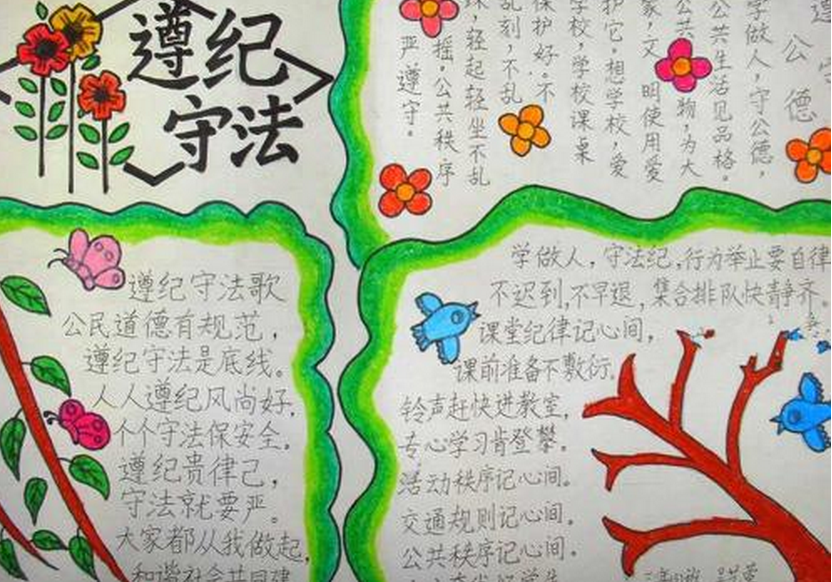 遵纪
守法
公德
学做人，守公德，
公共生活见品格。
公共 物，为大
家，文明使用爱
护它。想学校，爱
学校，学校课桌
保护好。不
乱刻，不乱
，轻起轻坐不乱
摇，公共秩序
严遵守。
遵纪守法歌
公民道德有规范，
遵纪守法是底线。
人人遵纪风尚好，
个个守法保安全。
遵纪贵律己，
守法就要严。
大家都从我做起，
和谐社会共同建
学做人，守法纪，行为举止要自律
不迟到，不早退，集合排队快静齐。
课堂纪律记心间，
课前准备不敷衍。
铃声赶快进教室，
专心学习肯登攀。
活动秩序记心间。
交通规则记心间。
公共秩序记心间。